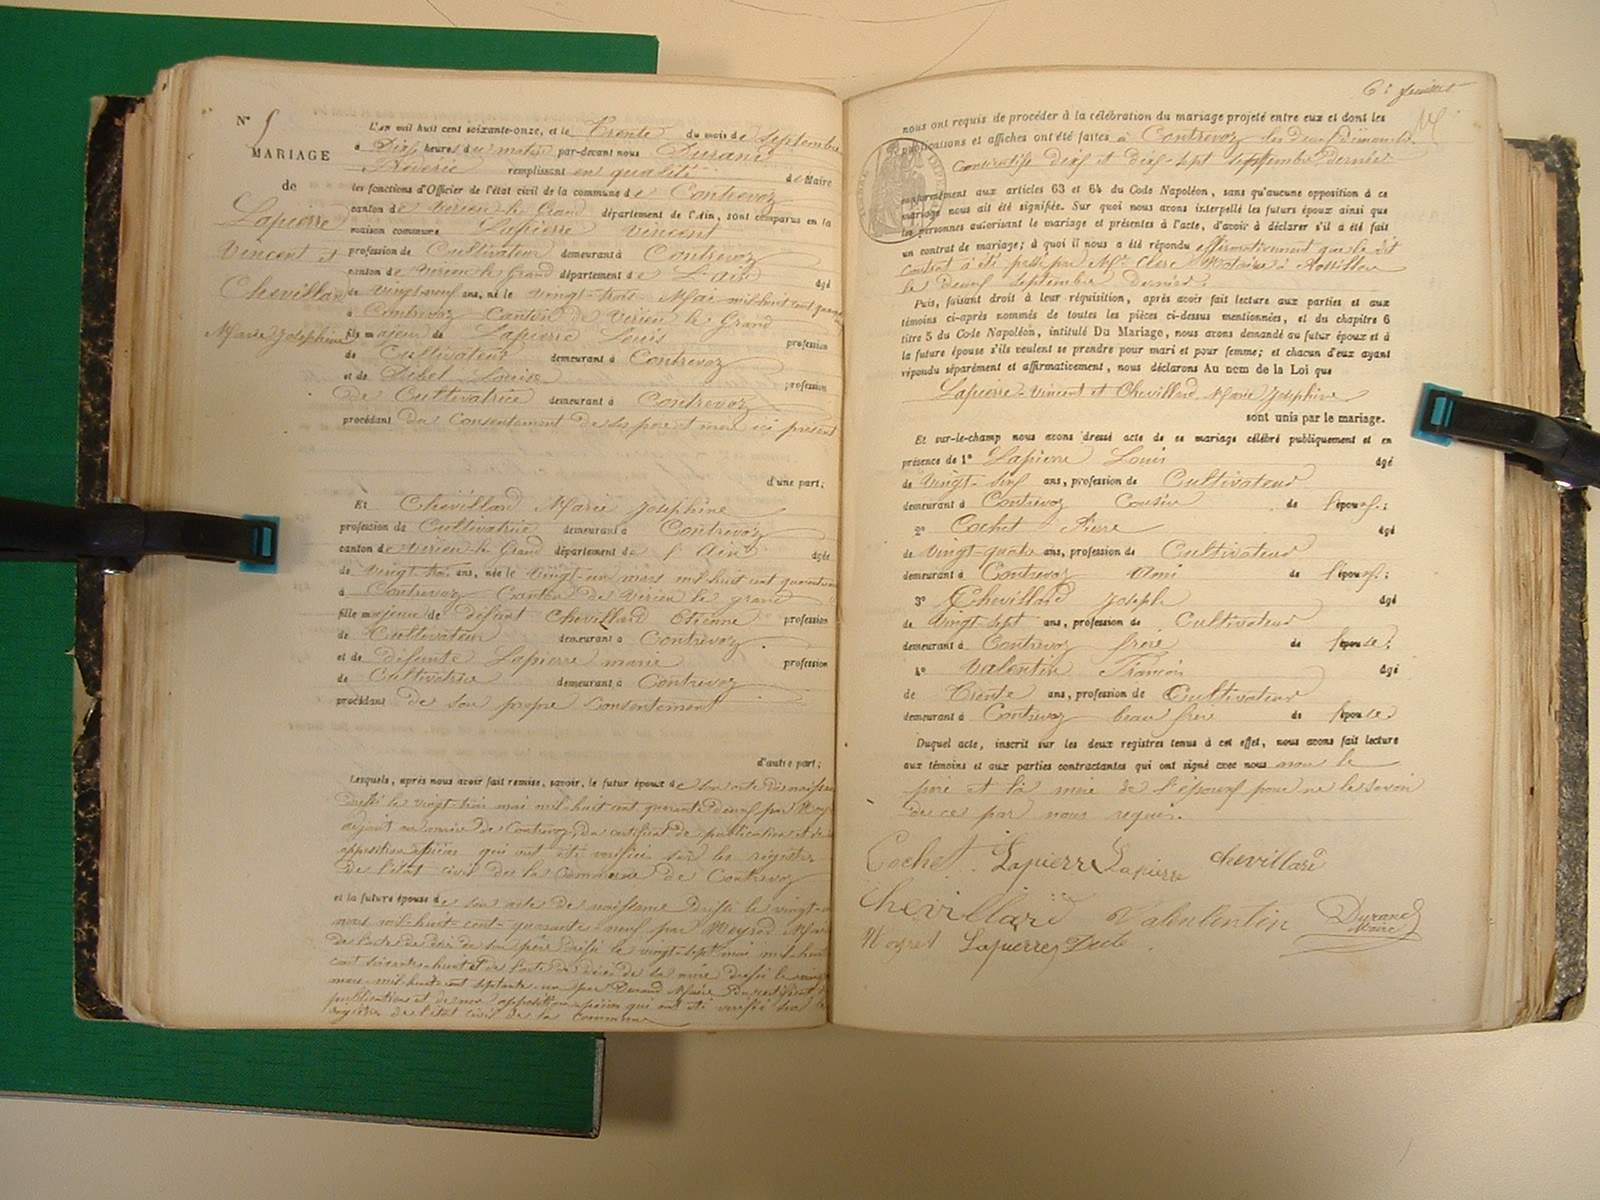 N° 5
MARIAGE
de
Lapierre
Vincent et
Chevillard
Marie Josephine
L'an mil huit cent soixante-onze, et le Trente du mois de Septembre
à Dix heures du matin par-devant nous Durand
Fréderic remplissant en qualité de Maire
les fonctions d'Officier de l'état civil de la commune de Contrevoz
canton de Virieu-le-Grand département de l'Ain, sont comparus en la
maison commune Lapierre Vincent
profession de Cultivateur demeurant à Contrevoz
canton de Virieu le Grand département de L'Ain âgé
de vingt-neuf ans, né le vingt-trois Mai mil huit cent
à Contrevoz Canton de Virieu le Grand
fils majeur de Lapierre Louis profession
de Cultivateur demeurant à Contrevoz
et de Louise profession
de Cultivatrice demeurant à Contrevoz
procédant du Consentement de ses père et mère ici présent
d'une part;
Et Chevillard Marie Josephine
profession de Cultivatrice demeurant à Contrevoz
canton de Virieu-le-Grand département de l'Ain âgée
de vingt trois ans, née le vingt-un mars mil huit cent
à Contrevoz Canton de Virieu le grand
fille majeure de défunt Chevillard Etienne profession
de Cultivateur demeurant à Contrevoz
et de défunte Lapierre marie profession
de Cultivatrice demeurant à Contrevoz
procédant de son propre Consentement
d'autre part;
Lesquels, après nous avoir fait remise, savoir, le futur époux de son acte de naissance
dressé le vingt-trois mai mil huit cent quarante deux par
adjoint au maire de Contrevoz, du certificat de publication et de
opposition pièces qui ont été vérifiées sur les registres
de l'état civil de la Commune de Contrevoz
et la future épouse de son acte de naissance dressé le vingt-un
mars mil-huit-cent-quarante huit par Meyrod Maire
de l'acte de décès de son père dressé le vingt-sept mai mil huit
cent soixante-huit et de l'acte de décès de sa mère dressé le vingt
mars mil-huit-cent septante-un par Durand Maire Du certificat
publications et de non opposition pièces qui ont été vérifiées sur les
registres de l'état civil de la commune
6e feuillet
nous ont requis de procéder à la célébration du mariage projeté entre eux et dont les
publications et affiches ont été faites à Contrevoz les deux dimanches
Consécutifs dix et dix-sept septembre dernier
conformément aux articles 63 et 64 du Code Napoléon, sans qu'aucune opposition à ce
mariage nous ait été signifiée. Sur quoi nous avons interpellé les futurs époux ainsi que
les personnes autorisant le mariage et présentes à l'acte, d'avoir à déclarer s'il a été fait
un contrat de mariage; à quoi il nous a été répondu affirmativement que le dit
Contrat a été passé par Me Clerc Notaire à Rossillon
le septembre dernier.
Puis, faisant droit à leur réquisition, après avoir fait lecture aux parties et aux
témoins ci-après nommés de toutes les pièces ci-dessus mentionnées, et du chapitre 6
titre 5 du Code Napoléon, intitulé Du Mariage, nous avons demandé au futur époux et à
la future épouse s'ils veulent se prendre pour mari et pour femme; et chacun d'eux ayant
répondu séparément et affirmativement, nous déclarons Au nom de la Loi que
Lapierre Vincent et Chevillard Marie Josephine
sont unis par le mariage.
Et sur-le-champ nous avons dressé acte de ce mariage célébré publiquement et en
présence de 1° Lapierre Louis âgé
de vingt-six ans, profession de Cultivateur
demeurant à Contrevoz Cousin de l'époux;
2° Cochet Pierre âgé
de vingt-quatre ans, profession de Cultivateur
demeurant à Contrevoz Ami de l'époux;
3° Chevillard Joseph âgé
de Vingt-sept ans, profession de Cultivateur
demeurant à Contrevoz frère de l'épouse;
4° Valentin François âgé
de Trente ans, profession de Cultivateur
demeurant à Contrevoz beau frère de l'épouse
Duquel acte, inscrit sur les deux registres tenus à cet effet, nous avons fait lecture
aux témoins et aux parties contractantes qui ont signé avec nous non le
père et la mère de l'époux pour ne le savoir
de ce par nous requis.
Cochet. Lapierre Lapierre Chevillard
Chevillard Valentintin Durand
Maire
Meyret Lapierre